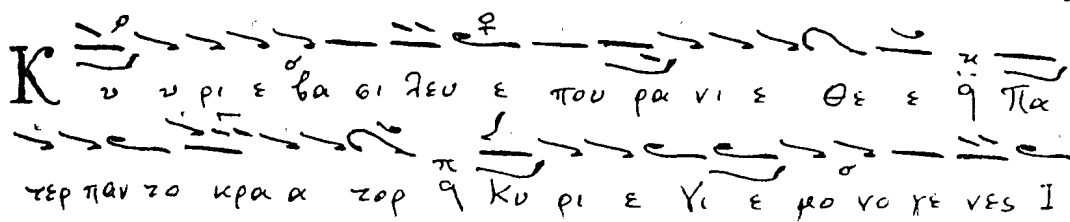 Κυ υ ρι ε βα σι λευ ε που ρα νι ε Θε ε ϥ Πα
τερ παν το κρα α τορ ϥ Κυ ρι ε Υι ε μο νο γε νες Ι